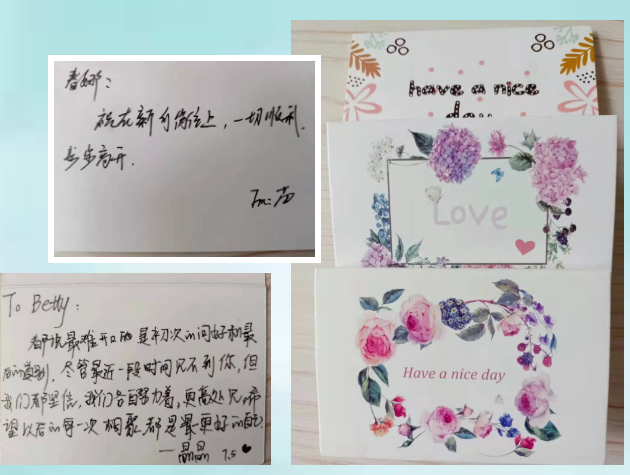 春娜：
祝在新的岗位上，一切顺利，
步步高升．
To Betty：
都说最难开口的是初次的问好和最
后的道别，尽管最近一段时间见不到你，但
我们都坚信，我们各自努力着，更高处见，希
望以后的每一次相聚，都是最更好的自己
——晶晶 7.5
have a nice
day
Love
Have a nice day